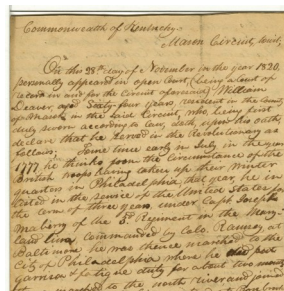 Commonwealth of Kentucky
Mason Circuit, Court,
On this 28th day of November in the year 1820,
personally appeared in open Court, (being a Court of
record in and for the Circuit aforesaid) William
Deaver, aged Sixty four years, resident in the County
of Mason in the said Circuit, who being first
duly sworn according to law, doth upon his oath
declare that he served in the Revolutionary as
follows: Some time early in July in the year
1777 he thinks from the circumstance of the
British troops having taken up their winter
quarters in Philadelphia that year, he in
listed in the service of the United States for
the term of three years, under Capt Joseph
Maberry of the 3d Regiment in the Mary
land line, commanded by Colo. Ramsey, at
Baltimore he was thence marched to the
City of Philadelphia where he did
garrison & fatigue duty for about two
marched to the north river and joined